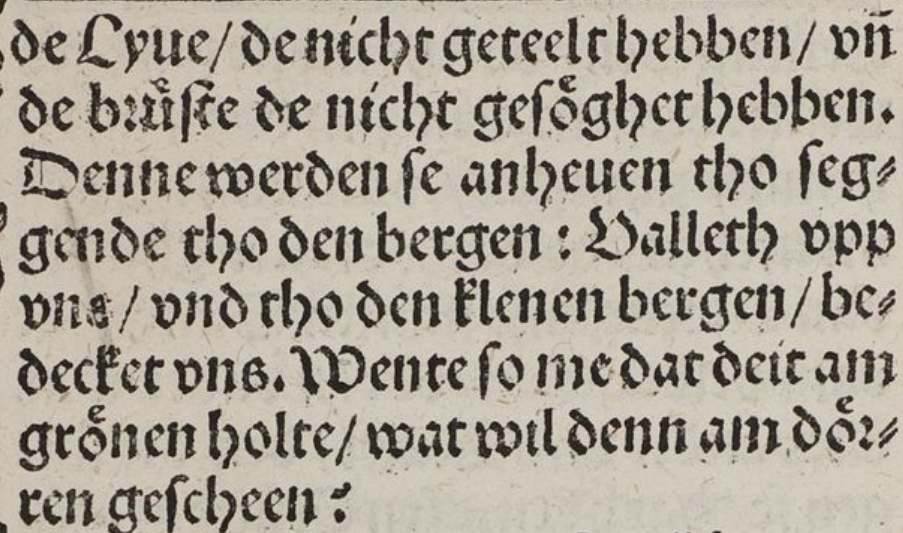 de Lyue/ de nicht geteelt hebben/ vn̄
de bruͤſte de nicht geſoͤghet hebben.
Denne werden ſe anheuen tho ſeg⸗
gende tho den bergen: Valleth vpp
vns/ vnd tho den klenen bergen/ be⸗
decket vns. Wente ſo me dat deit am
groͤnen holte/ wat wil denn am doͤr⸗
ren geſcheen?